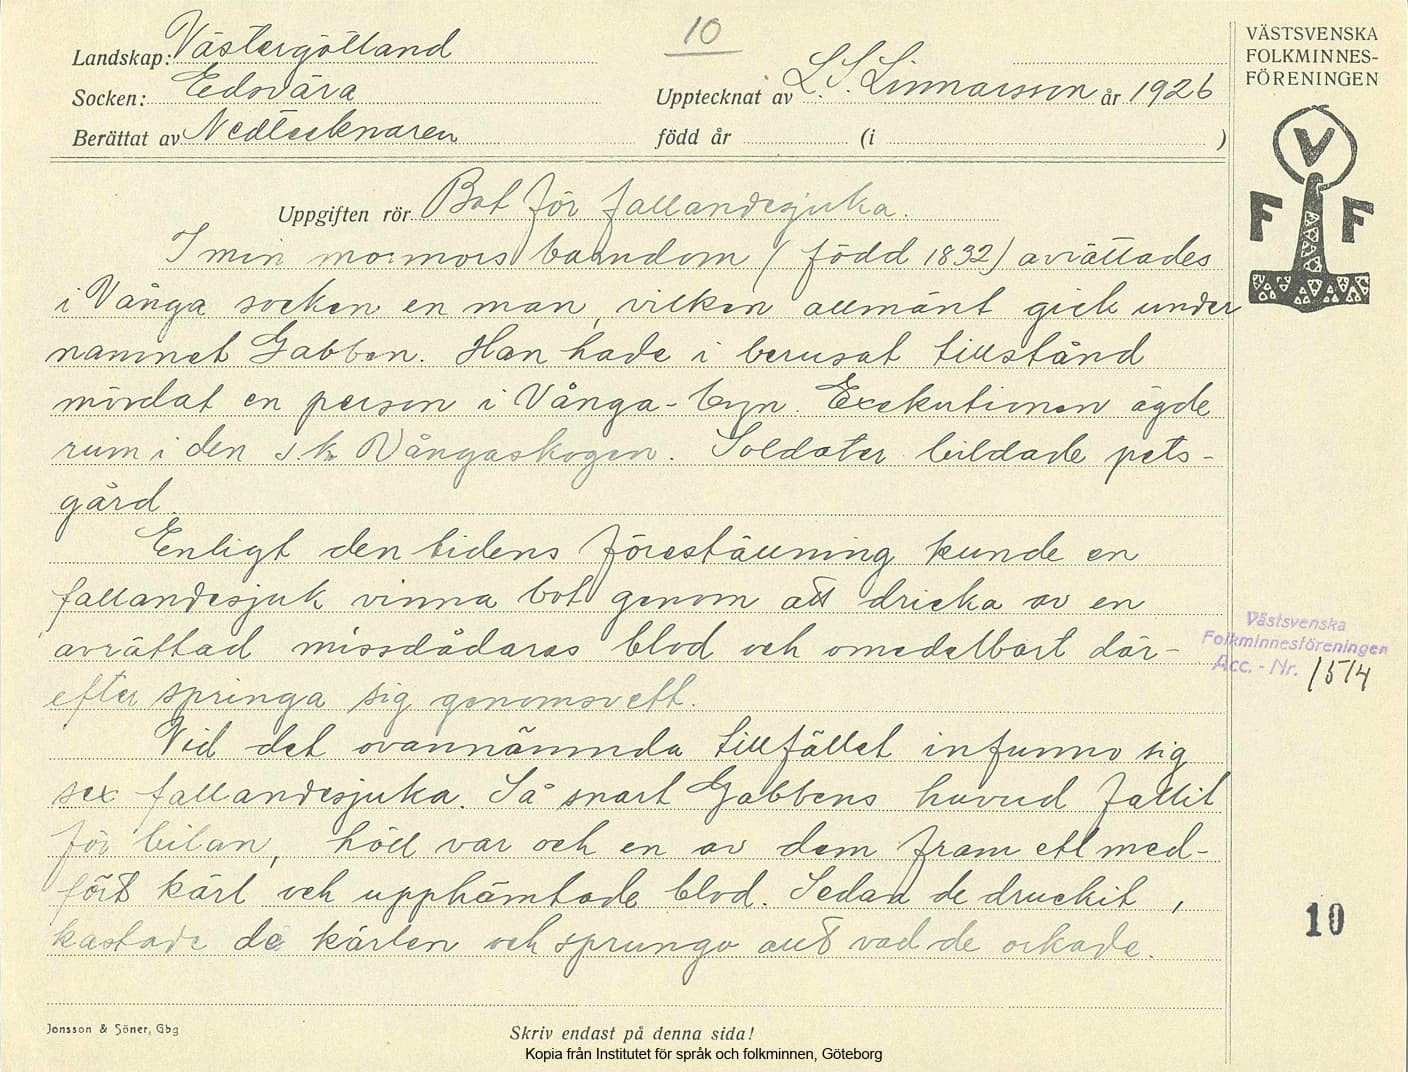 10
Landskap: Västergötland
Socken: Edsvära
Upptecknat av L. S. Linnarsson år 1926
Berättat av Nedtecknaren
född år (i )
VÄSTSVENSKA
FOLKMINNES-
FÖRENINGEN
V
F F
Uppgiften rör Bot för fallandesjuka.
I min mormors barndom (född 1832) avrättades
i Vånga socken en man, vilken allmänt gick under
namnet Gabben. Han hade i berusat tillstånd
mördat en person i Vånga-byn. Exekutionen ägde
rum i den s k Vångaskogen. Soldater bildade pets-
gård.
Enligt den tidens föreställning kunde en
fallandesjuk vinna bot genom att dricka av en
avrättad missdådares blod och omedelbart där-
efter springa sig genomsvett.
Vid det ovannämnda tillfället infunno sig
sex fallandesjuka. Så snart Gabbens huvud fallit
för bilan, höll var och en av dem fram ett med-
fört kärl och upphämtade blod. Sedan de druckit,
kastade de kärlen och sprungo allt vad de orkade.
Västsvenska
Folkminnesföreningen
Acc. - Nr. 1514
10
Jonsson & Söner, Gbg
Skriv endast på denna sida!
Kopia från Institutet för språk och folkminnen, Göteborg